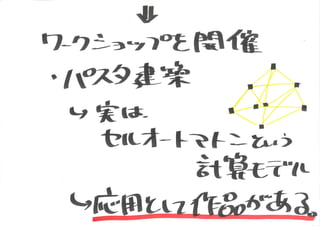 ⇓
ワークショップを開催
・パスタ建築
↳実は、
セルオートマトンという
計算モデル
↳応用として作品がある。